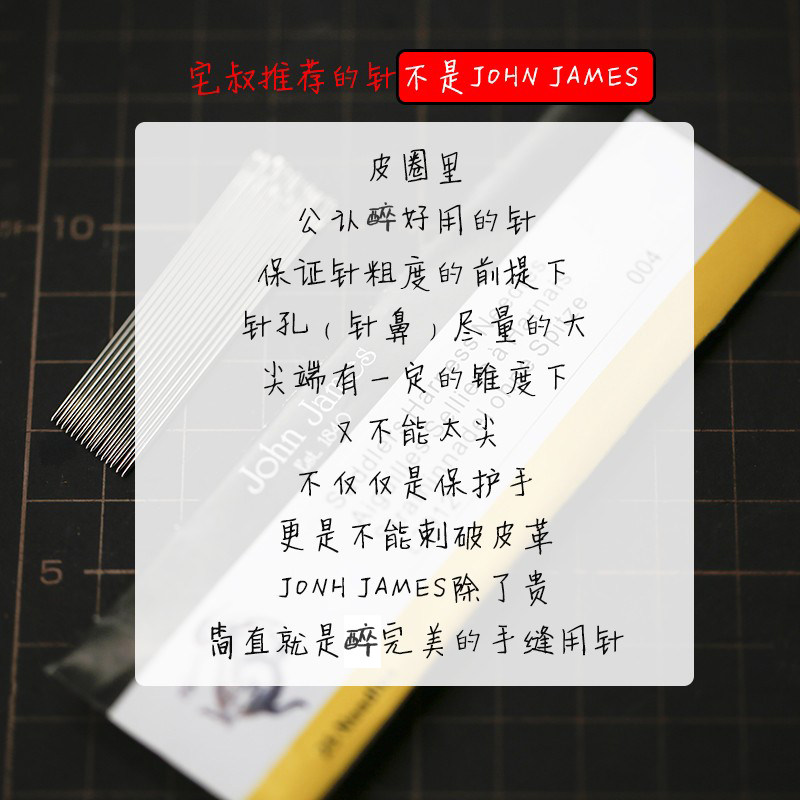 宅叔推荐的针不是JOHN JAMES
皮圈里
公认醉好用的针
保证针粗度的前提下
针孔(针鼻)尽量的大
尖端有一定的锥度下
又不能太尖
不仅仅是保护手
更是不能刺破皮革
JONH JAMES除了贵
简直就是醉完美的手缝用针
10
5
004
John James
Est. 1840
Saddlers Harness Needles